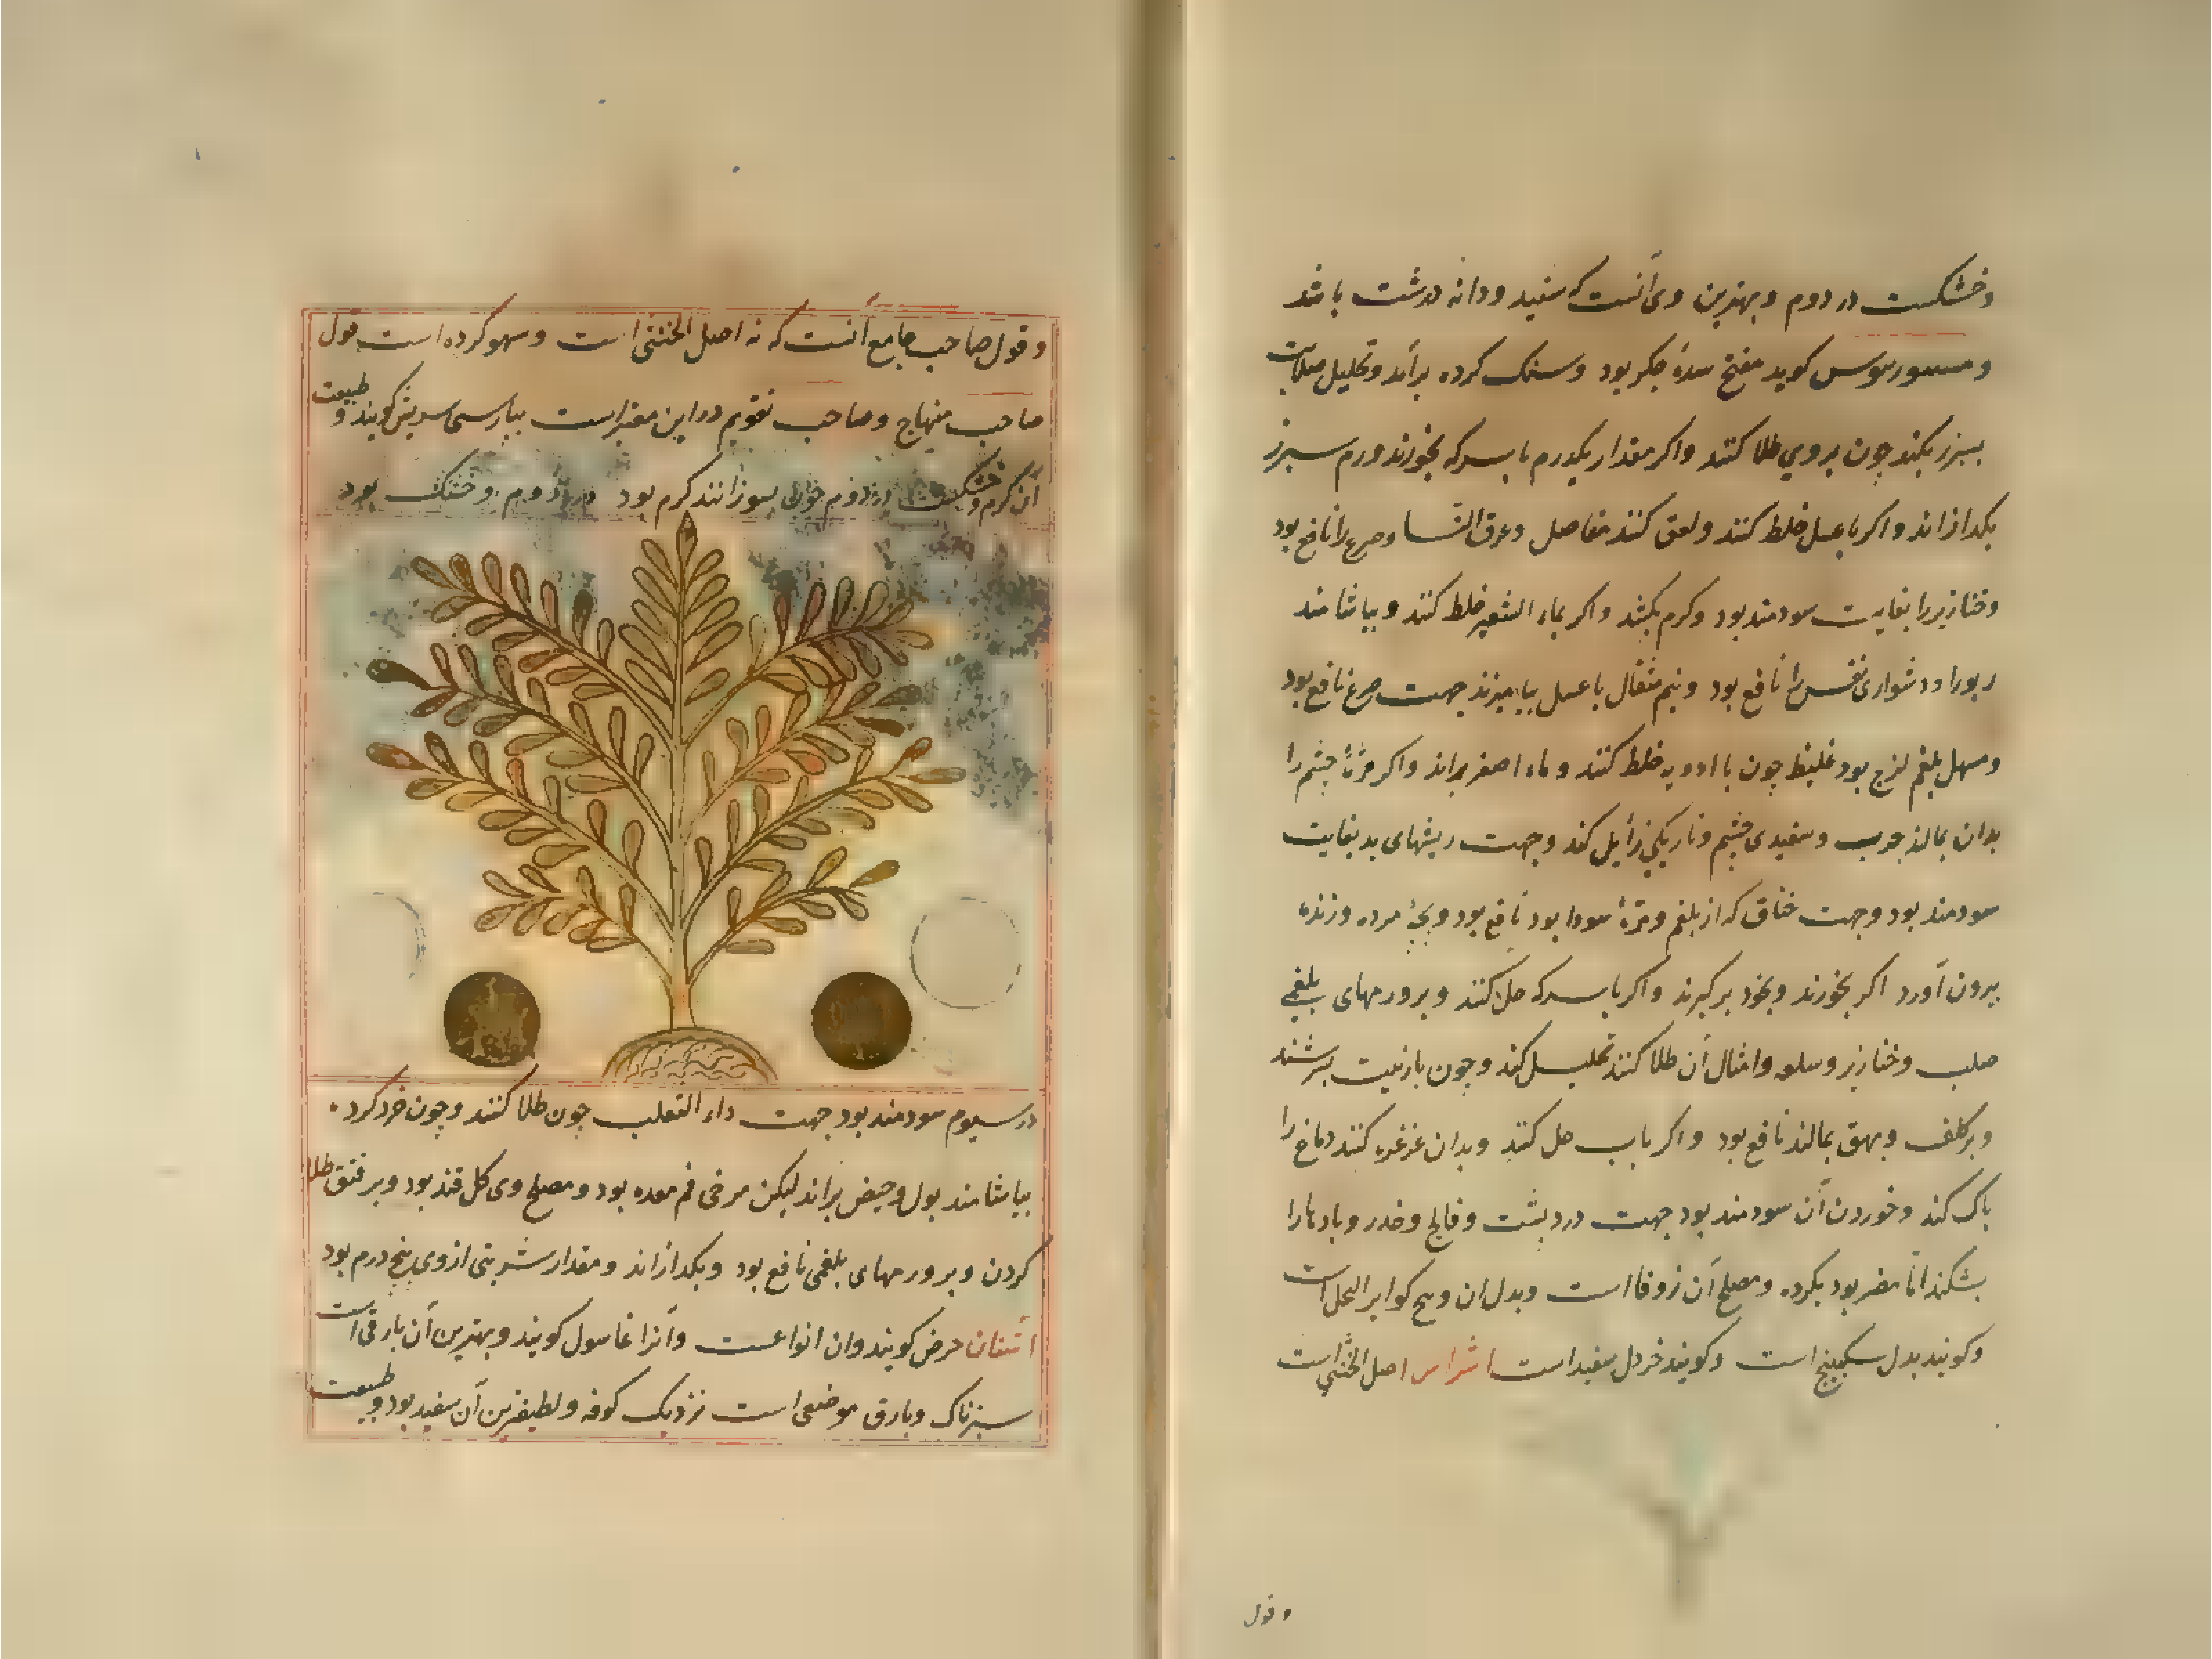 وخشکست در دوم و بهترین وی آنست که سفید و دانه درشت باشد
و گوید مفتح سدهٔ جکر بود و سنک کرده براند و تحلیل صلابت
سپرز بکند چون بروی طلا کنند واکر مقدار یکدرم با سرکه بخورند ورم سپرز
بکدازاند واکر با عسل خلط کنند ولعق کنند مفاصل وعرق النسا وصرع را نافع بود
وخنازیر را بغایت سودمند بود وکرم بکشد واکر بماء الشعیر خلط کنند و بیاشامند
ربو را و دشواری نفس را نافع بود و نیم مثقال با عسل بیامیزند جهت صرع نافع بود
ومسهل بلغم لزج بود غلیظ چون با ادویه خلط کنند و ماء اصفر براند واکر چشم را
بدان بمالند جرب وسفیدی چشم وتاریکی زایل کند وجهت ریشهای بد بغایت
سودمند بود وجهت خناق که از بلغم ومرهٔ سودا بود نافع بود وبچهٔ مرده وزنده
بیرون آورد اکر بخورند وبخود برکیرند واکر با سرکه حل کنند وبرورمهای بلغمی
صلب وخنازیر وسلعه وامثال آن طلا کنند تحلیل کند وچون بازیت بسرشند
وبرکلف وبهق بمالند نافع بود واکر باب حل کنند وبدان غرغره کنند دماغ را
پاک کند وخوردن آن سودمند بود جهت درد پشت وفالج وخدر وبادها را
بشکند اما مضر بود بکرده ومصلح آن زوفا است وبدل آن وسخ کوایر النحل است
وکویند بدل سکبینج است وکویند خردل سفید است اشراس اصل الخنثی است
وقول
وقول صاحب جامع آنست که نه اصل الخنثی است وسهو کرده است قول
صاحب منهاج وصاحب تقویم در این معتبر است بپارسی سریش کویند وطبیعت
آن کرم وخشکست در دوم چون بسوزانند کرم بود در دوم وخشک بود
در سیوم سودمند بود جهت داء الثعلب چون طلا کنند وچون خرد کرد
بیاشامند بول وحیض براند لیکن مرخی فم معده بود ومصلح وی کل قند بود وبر فتق طلا
کردن وبر ورمهای بلغمی نافع بود وبکدازاند ومقدار شربتی از وی پنج درم بود
اشنان حرض کویند وان انواعست وآنرا غاسول کویند وبهترین آن بارقی است
سبزناک وبارق موضعی است نزدیک کوفه ولطیفترین آن سفید بود وطبیعت